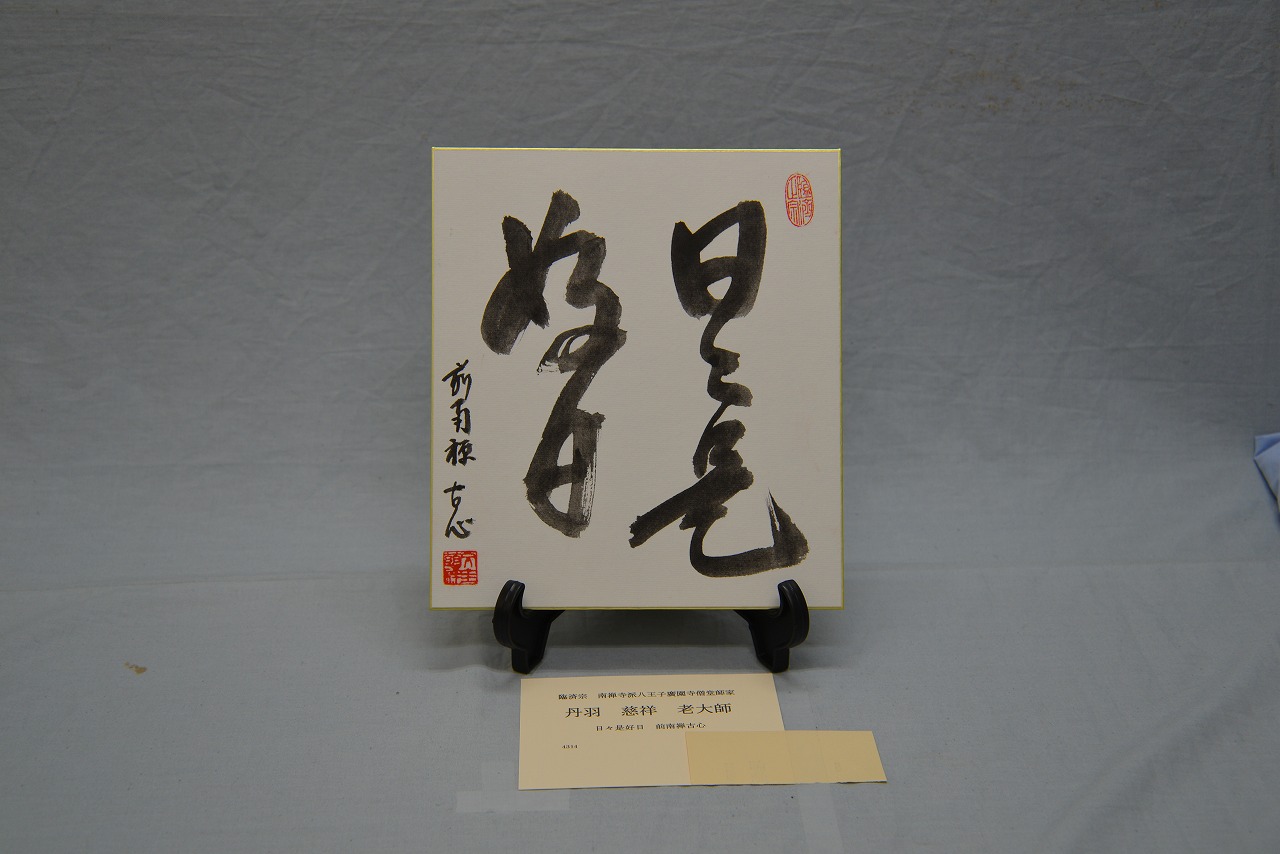 日々是
好日
前南禅 古心
臨済宗　南禅寺派八王子廣園寺僧堂師家
丹羽　慈祥　老大師
日々是好日　前南禅古心
4314